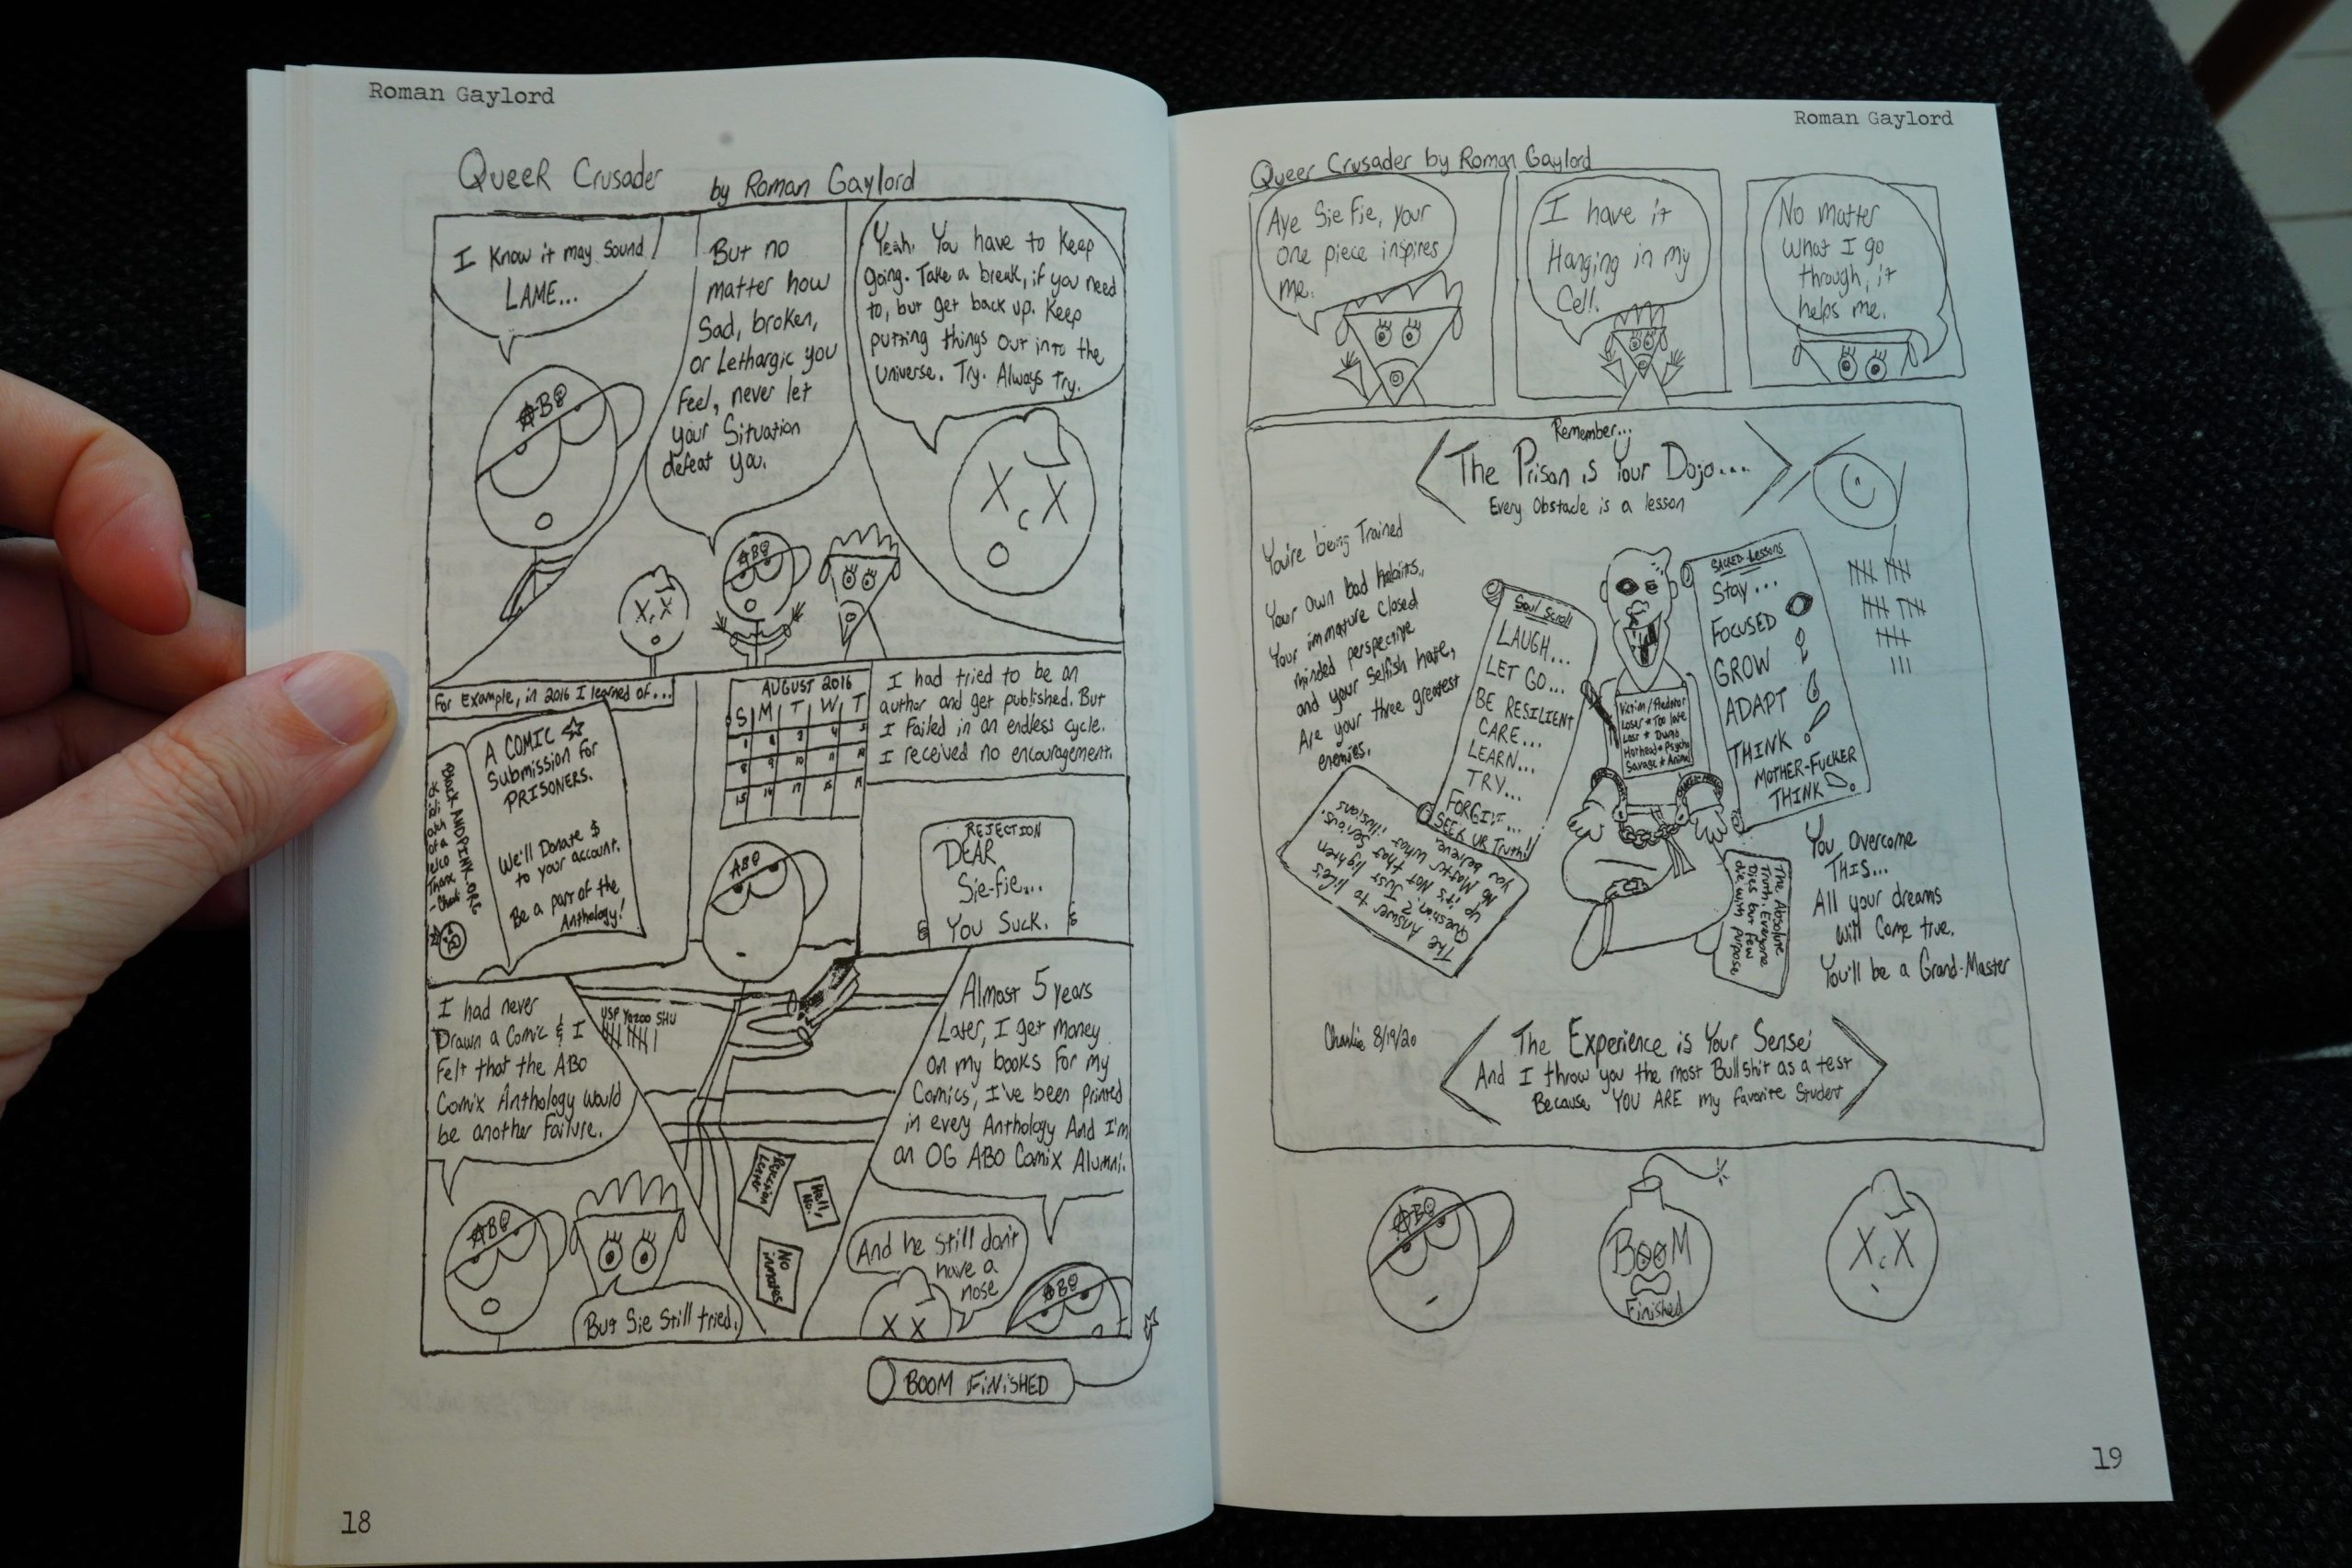 Roman Gaylord
Queer Crusader by Roman Gaylord
I Know it may sound
LAME...
But no
matter how
Sad, broken,
or Lethargic you
Feel, never let
your Situation
defeat you.
Yeah. You have to Keep
going. Take a break, if you need
to, but get back up. Keep
putting things out into the
Universe. Try. Always Try.
ABO
ABO
For Example, in 2016 I learned of...
BLACK ANDPINK.ORG
A COMIC
Submission For
PRISONERS.
We'll Donate $
to your account.
Be a part of the
Anthology!
AUGUST 2016
S M T W T
ABO
I had tried to be an
author and get published. But
I Failed in an endless cycle.
I received no encouragement.
REJECTION
DEAR
Sie-fie...
You Suck.
I had never
Drawn a Comic & I
Felt that the ABO
Comix Anthology would
be another Failure.
ABO
But Sie Still tried.
USP Yazoo SHU
Rejection
Letter
Hell,
No!
No
inmates
Almost 5 years
Later, I get money
on my books For my
Comics, I've been Printed
in every Anthology And I'm
an OG ABO Comix Alumni.
And he still don't
have a
nose
ABO
BOOM FINISHED
18
Roman Gaylord
Queer Crusader by Roman Gaylord
Aye Sie Fie, your
one piece inspires
me.
I have it
Hanging in my
Cell.
No matter
What I go
through, it
helps me.
Remember...
The Prison is Your Dojo...
Every Obstacle is a lesson
You're being Trained
Your own bad habits,
Your immature closed
minded perspective
and your Selfish hate,
Are your three greatest
enemies.
Soul Scroll
LAUGH...
LET GO...
BE RESILIENT
CARE...
LEARN...
TRY...
FORGIVE...
SEEK UR Truth!!
Victim/Predator
Loser * Too late
Lost * Dumb
Hothead * Psycho
Savage * Animal
SACRED Lessons
Stay...
FOCUSED
GROW
ADAPT
THINK
MOTHER-FUCKER
THINK
The Answer to life's
Question? Just lighten
up it's Not that Serious.
No Matter what illusions
you believe.
The Absolute
Truth. Everyone
Dies but few
die with purpose
You Overcome
THIS...
All your dreams
will Come true.
You'll be a Grand-Master
Charlie 8/19/20
The Experience is Your Sensei
And I throw you the most Bullshit as a test
Because YOU ARE my favorite Student
ABO
BOOM
Finished
19